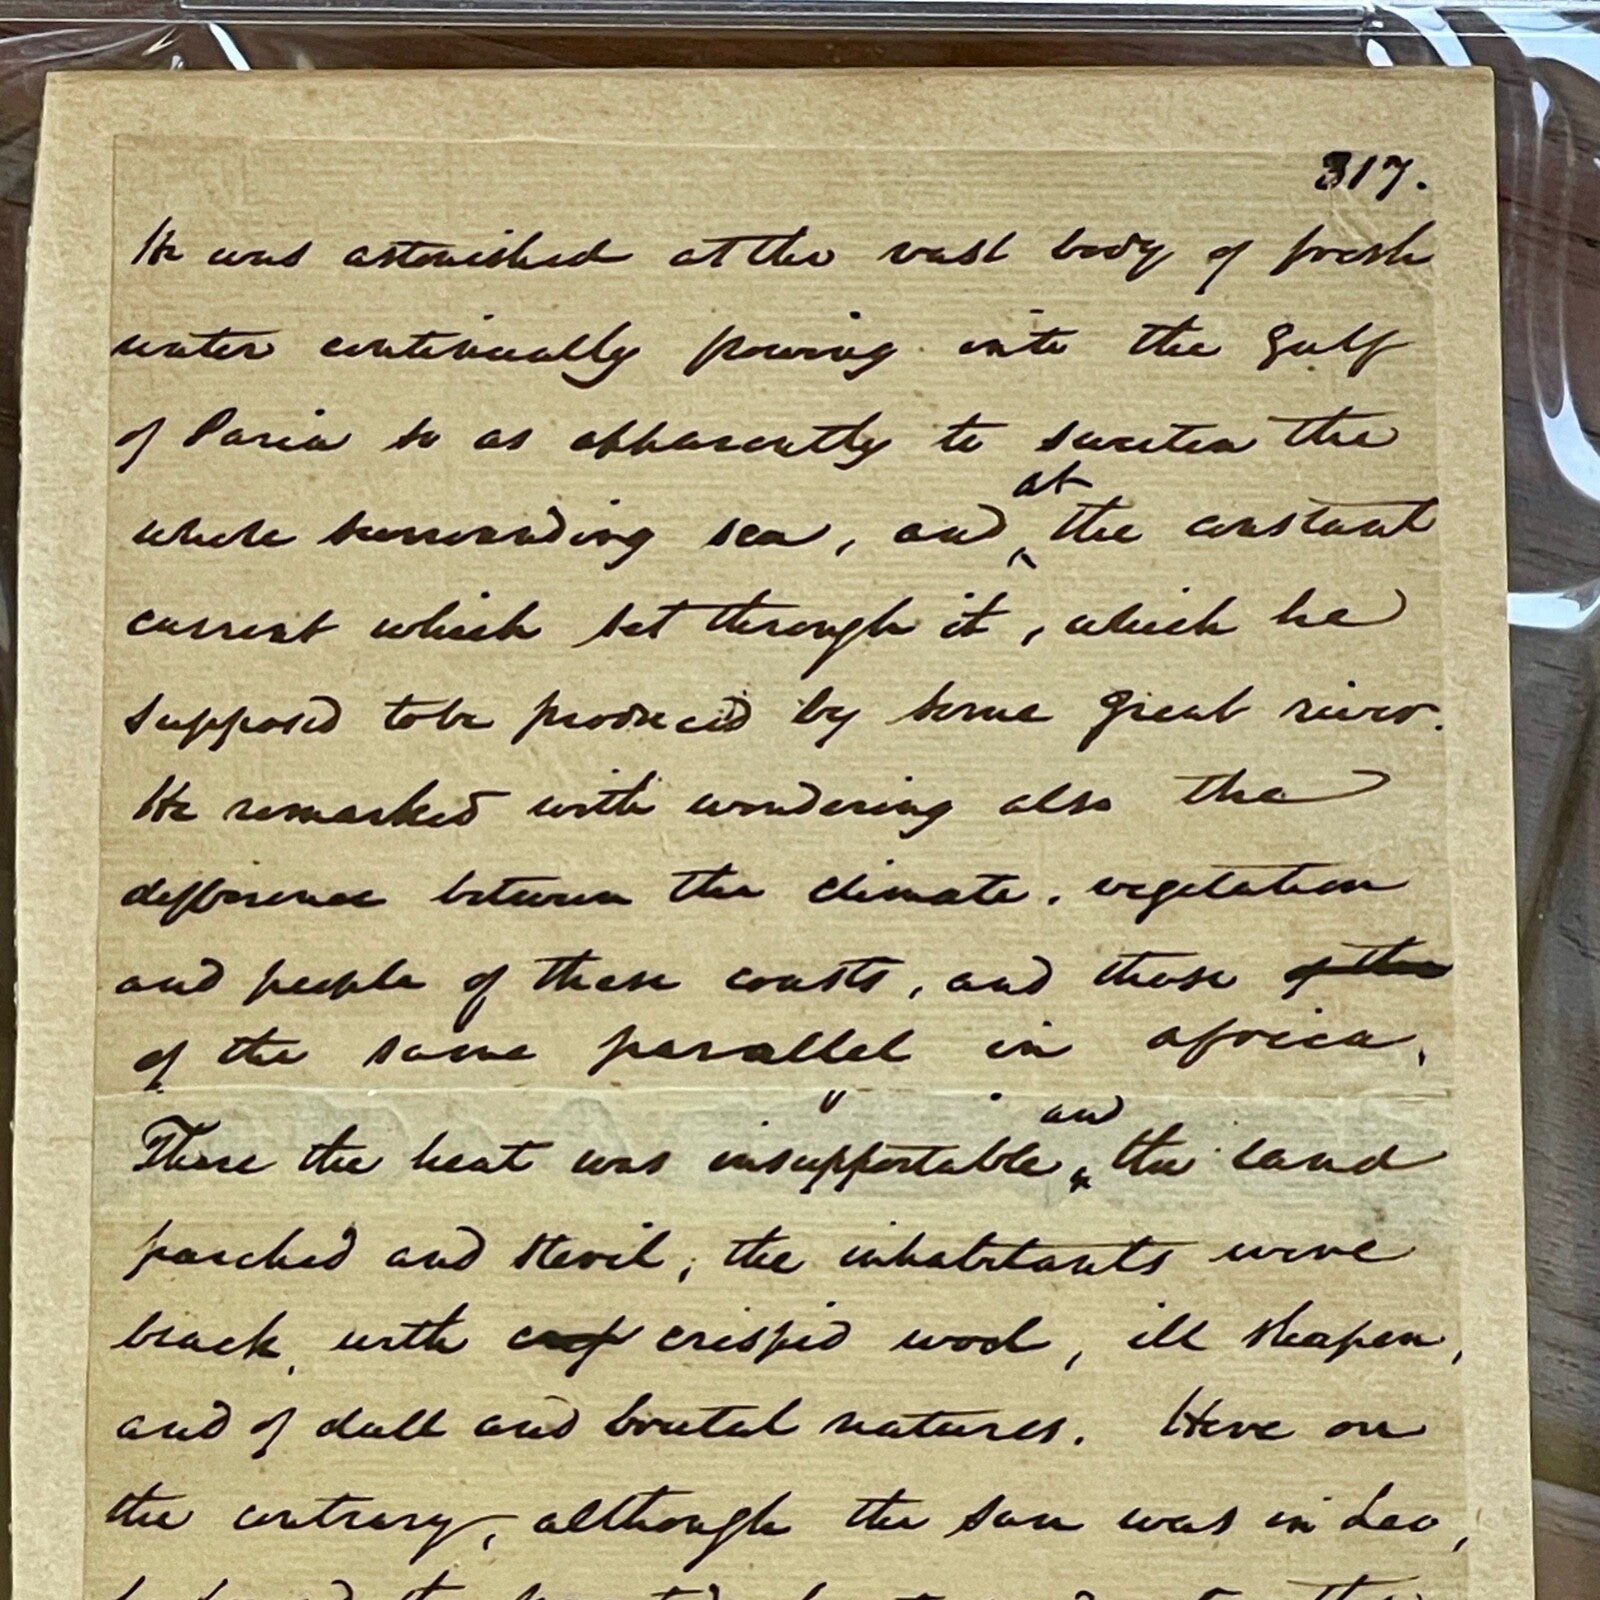 317.
He was astonished at the vast body of fresh
water continually flowing into the Gulf
of Paria so as apparently to sweeten the
at
whole surrounding sea, and ‸ the constant
current which set through it, which he
supposed to be produced by some great river.
He remarked with wondering also the
difference between the climate, vegetation
and people of these coasts, and those of the
of the same parallel in africa.
and
There the heat was insupportable ‸ the land
parched and steril, the inhabitants were
black, with crisped wool, ill shapen,
and of dull and brutal natures. Here on
the contrary, although the sun was in Leo,